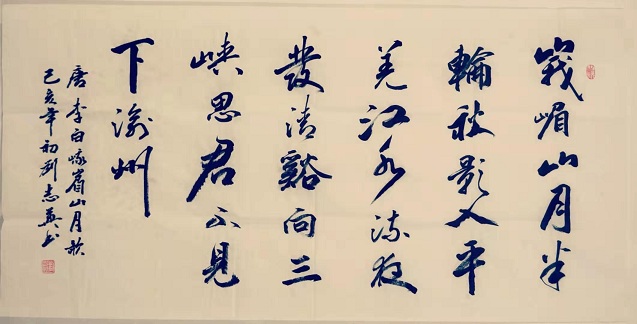 峩嵋山月半
輪秋影入平
羌江水流夜
發清谿向三
峽思君不見
下渝州
唐李白峨眉山月歌
己亥年初刘志英书